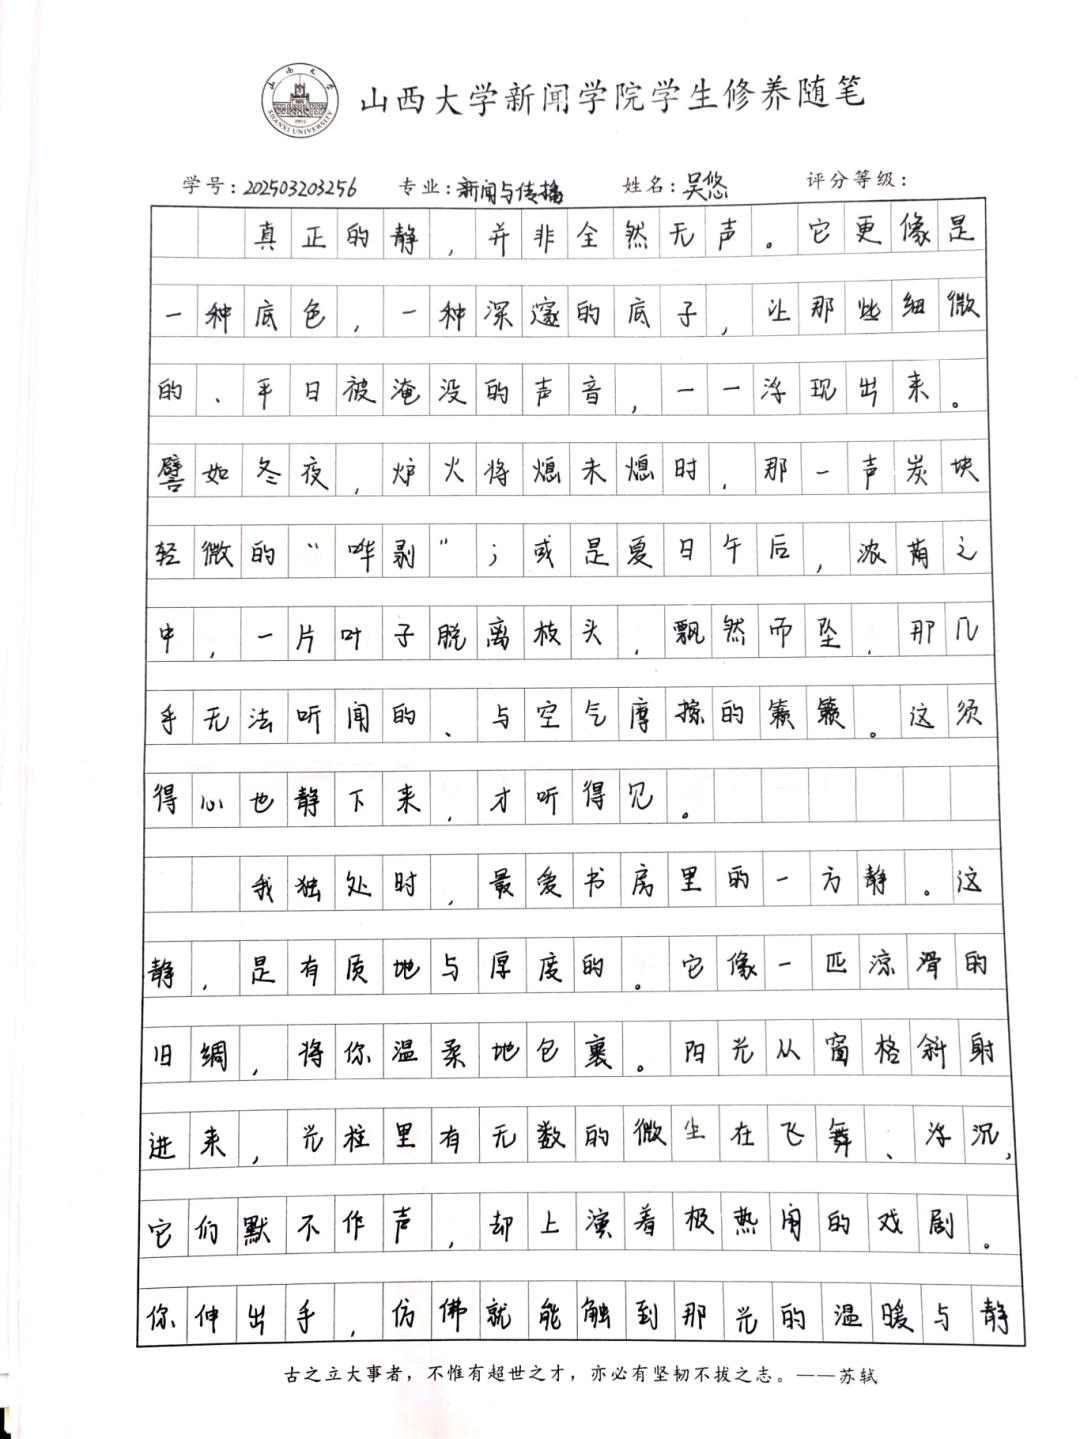 山西大学
SHANXI UNIVERSITY
1902
山西大学新闻学院学生修养随笔
学号:202503203256 专业:新闻与传播 姓名:吴悠 评分等级:
真正的静,并非全然无声。它更像是
一种底色,一种深邃的底子,让那些细微
的、平日被淹没的声音,一一浮现出来。
譬如冬夜,炉火将熄未熄时,那一声炭块
轻微的“哔剥”;或是夏日午后,浓荫之
中,一片叶子脱离枝头,飘然而坠,那几
乎无法听闻的、与空气摩擦的簌簌。这须
得心也静下来,才听得见。
我独处时,最爱书房里的一方静。这
静,是有质地与厚度的。它像一匹凉滑的
旧绸,将你温柔地包裹。阳光从窗格斜射
进来,光柱里有无数的微尘在飞舞、浮沉,
它们默不作声,却上演着极热闹的戏剧。
你伸出手,仿佛就能触到那光的温暖与静
古之立大事者,不惟有超世之才,亦必有坚韧不拔之志。——苏轼